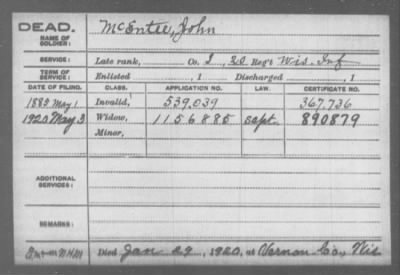 DEAD.
NAME OF SOLDIER: McEntee, John
SERVICE: Late rank, Co. I, 20 Reg't Wis. Inf
TERM OF SERVICE: Enlisted , 1 Discharged , 1
DATE OF FILING. CLASS. APPLICATION NO. LAW. CERTIFICATE NO.
1885 May 1 Invalid, 539.039 367.736
1920 May 3 Widow, 1156885 sept. 890879
Minor,
ADDITIONAL SERVICES:
REMARKS:
Died Jan 29, 1920, at Vernon Co., Wis